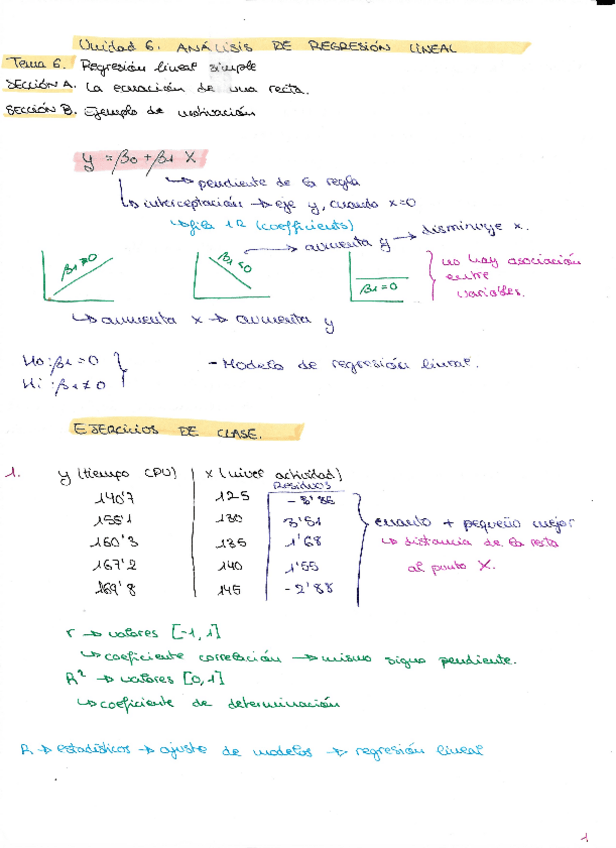 Unidad 6. ANÁLISIS DE REGRESIÓN LINEAL
Tema 6. Regresión lineal simple
SECCIÓN A. La ecuación de una recta.
SECCIÓN B. Ejemplo de motivación
y = β0 + β1 X
↳ pendiente de la regla
↳ interceptación → eje y, cuando x=0
↳ fila 12 (coefficients)
→ aumenta y → disminuye x.
β1>0
β1<0
β1=0
no hay asociación
entre
variables.
↳ aumenta x → aumenta y
Ho: β1 = 0
Hi: β1 ≠ 0
- Modelo de regresión lineal.
EJERCICIOS DE CLASE.
1. y (tiempo CPU) | x (nivel actividad)
Residuos
140'7 125 -3'86
155'1 130 3'51
160'3 135 1'68
167'2 140 1'55
169'8 145 -2'88
cuanto + pequeño mejor
↳ distancia de la recta
al punto X.
r → valores [-1,1]
↳ coeficiente correlación → mismo signo pendiente.
R² → valores [0,1]
↳ coeficiente de determinación
R → estadísticos → ajuste de modelos → regresión lineal
1.